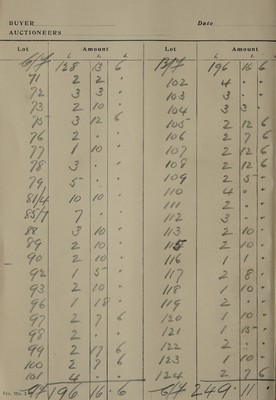 BUYER Date
AUCTIONEERS
Lot Amount Lot Amount
£ s. d. £ s. d.
B/f 128 13 6 B/f 196 16 6
71 2 2 " 102 4 " "
72 3 3 " 103 3 " "
73 2 10 " 104 3 3 "
75 3 12 6 105 2 12 6
76 2 " " 106 2 7 6
77 1 10 " 107 2 12 6
78 3 " " 108 2 12 6
79 5 " " 109 2 5 "
81/4 10 10 " 110 4 " "
85/7 7 " " 111 2 " "
88 3 10 " 112 3 " "
89 2 10 " 113 2 10 "
90 2 10 " 115 2 10 "
92 1 5 " 116 1 1 "
93 2 10 " 117 2 8 "
96 1 18 " 118 1 10 "
97 2 7 6 119 2 " "
98 2 " " 120 1 10 "
99 2 17 6 121 1 15 "
100 2 7 6 122 2 " "
101 4 " " 123 1 10 "
C/f 196 16 6 124 2 7 6
C/f 249 11 "